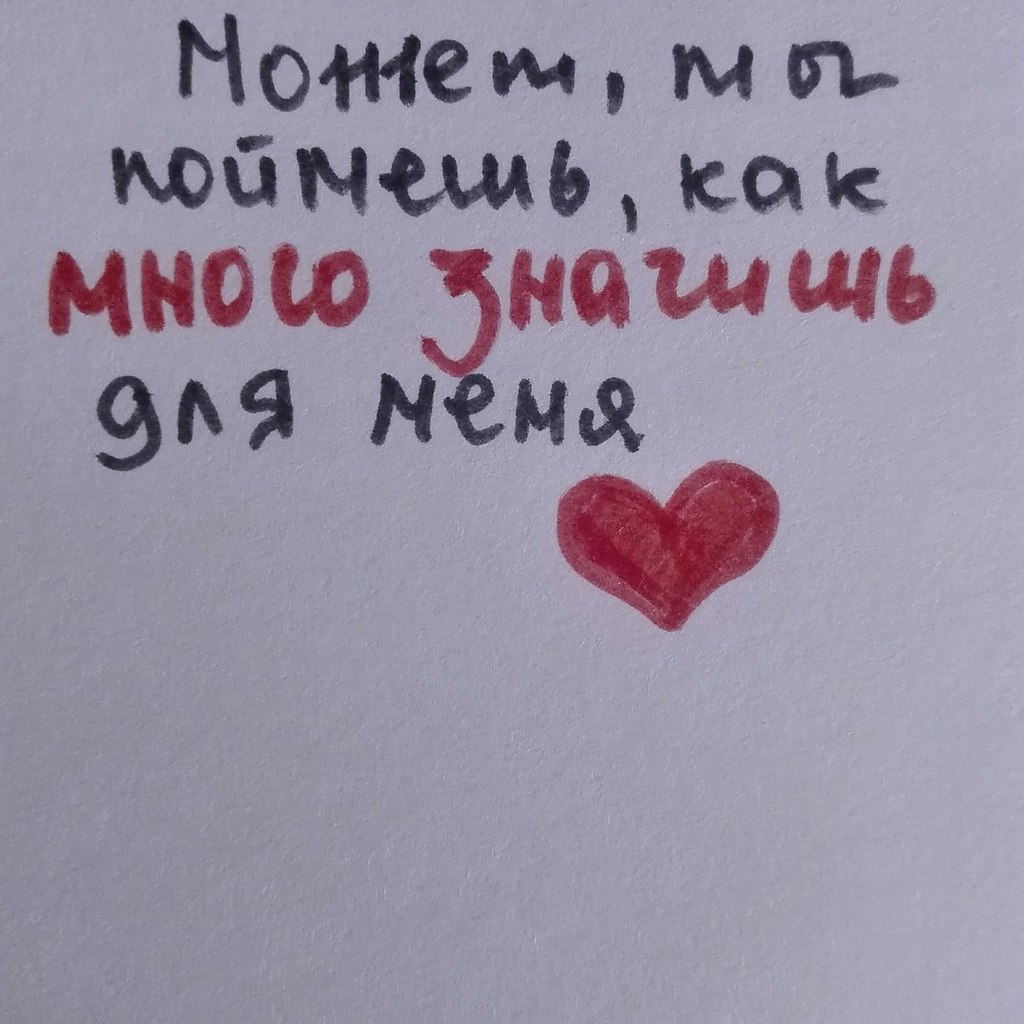 Может, ты
поймешь, как
много значишь
для меня